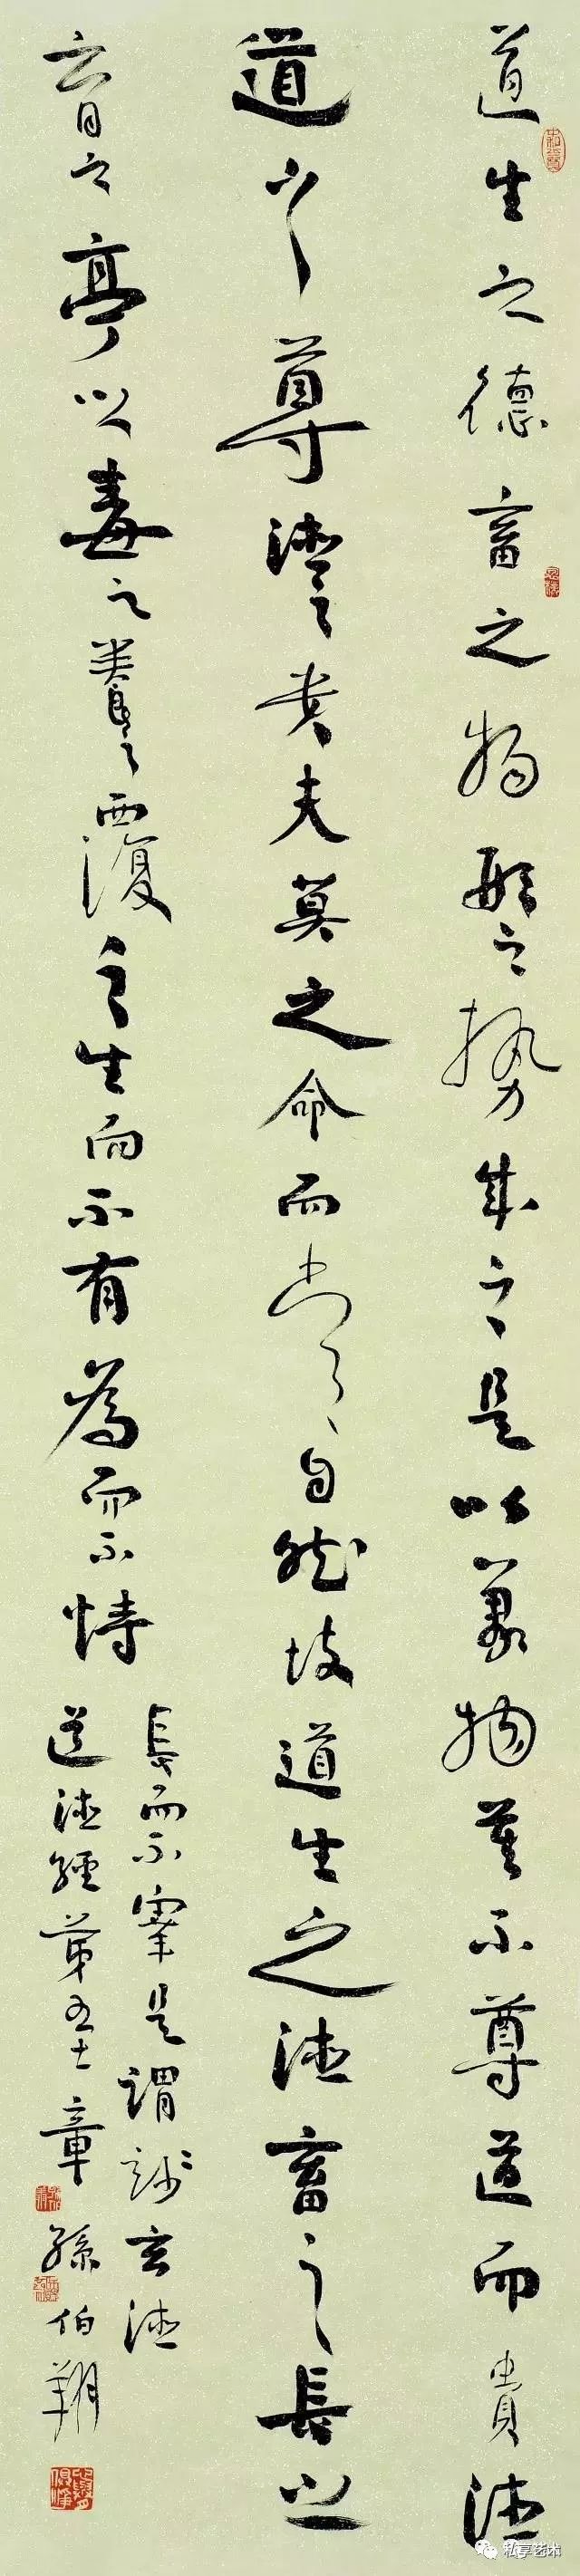 道生之德畜之物形之勢成之是以萬物莫不尊道而貴德
道之尊德之貴夫莫之命而常自然故道生之德畜之長之
育之亭之毒之養之覆之生而不有為而不恃
長而不宰是謂玄德
道德經第五十一章 孫伯翔
私享艺术